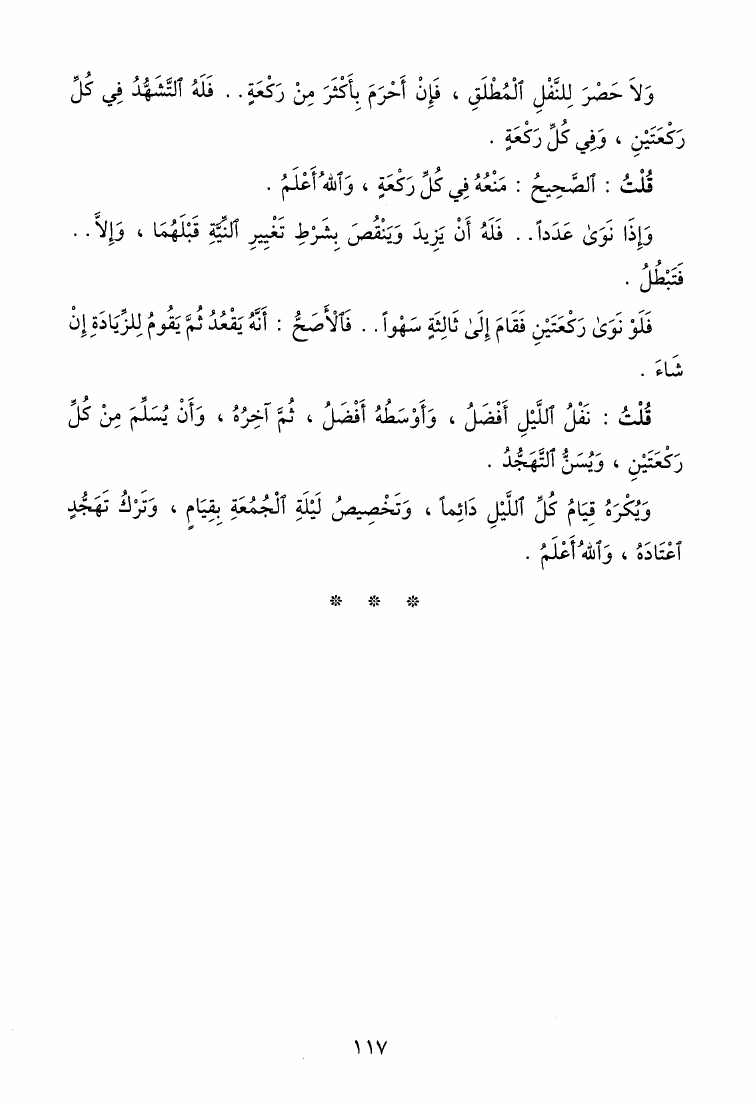 وَلاَ حَصْرَ لِلنَّفْلِ ٱلْمُطْلَقِ ، فَإِنْ أَحْرَمَ بِأَكْثَرَ مِنْ رَكْعَةٍ . . فَلَهُ ٱلتَّشَهُّدُ فِي كُلِّ
رَكْعَتَيْنِ ، وَفِي كُلِّ رَكْعَةٍ .
قُلْتُ : ٱلصَّحِيحُ : مَنْعُهُ فِي كُلِّ رَكْعَةٍ ، وَٱللهُ أَعْلَمُ .
وَإِذَا نَوَىٰ عَدَداً . . فَلَهُ أَنْ يَزِيدَ وَيَنْقُصَ بِشَرْطِ تَغْيِيرِ ٱلنِّيَّةِ قَبْلَهُمَا ، وَإِلاَّ . .
فَتَبْطُلُ .
فَلَوْ نَوَىٰ رَكْعَتَيْنِ فَقَامَ إِلَىٰ ثَالِثَةٍ سَهْواً . . فَٱلأَصَحُّ : أَنَّهُ يَقْعُدُ ثُمَّ يَقُومُ لِلزِّيَادَةِ إِنْ
شَاءَ .
قُلْتُ : نَفْلُ ٱللَّيْلِ أَفْضَلُ ، وَأَوْسَطُهُ أَفْضَلُ ، ثُمَّ آخِرُهُ ، وَأَنْ يُسَلِّمَ مِنْ كُلِّ
رَكْعَتَيْنِ ، وَيُسَنُّ ٱلتَّهَجُّدُ .
وَيُكْرَهُ قِيَامُ كُلِّ ٱللَّيْلِ دَائِماً ، وَتَخْصِيصُ لَيْلَةِ ٱلْجُمُعَةِ بِقِيَامٍ ، وَتَرْكُ تَهَجُّدٍ
ٱعْتَادَهُ ، وَٱللهُ أَعْلَمُ .
* * *
١١٧